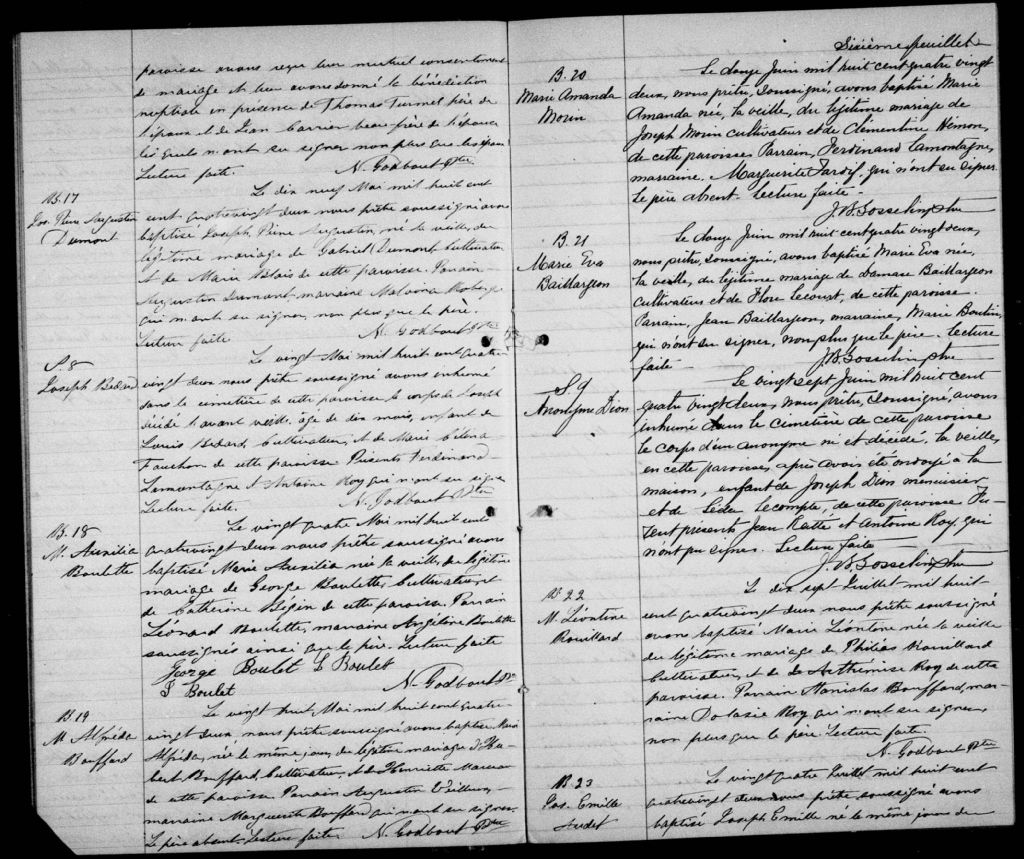 paroisse avons reçu leur mutuel consentement
de mariage et leur avons donné la bénédiction
nuptiale en présence de Thomas Turmel père de
l'époux et de Jean Carrier beau frère de l'épouse
lesquels n'ont su signer non plus que les époux
Lecture faite. N. Godbout Ptre
B. 17
Jos. Pierre Augustin
Dumont
Le dix neuf Mai mil huit cent
cent quatrevingt deux nous prêtre soussigné avons
baptisé Joseph, Pierre Augustin, né la veille, du
légitime mariage de Gabriel Dumont, Cultivateur
et de Marie Blais de cette paroisse. Parrain
Augustin Dumont, marraine Malvina Roberge
qui n'ont su signer, non plus que le père.
Lecture faite N. Godbout Ptre
S. 8
Joseph Bédard
Le vingt Mai mil huit cent quatre
vingt deux nous prêtre soussigné avons inhumé
dans le cimetière de cette paroisse le corps de Joseph
décédé l'avant veille, âgé de dix mois, enfant de
Louis Bedard, Cultivateur, et de Marie
Fauchon de cette paroisse Présents Ferdinand
Lamontagne et Antoine Roy qui n'ont su signer
Lecture faite. N. Godbout Ptre
B. 18
M. Auxilia
Boulette
Le vingt quatre Mai mil huit cent
quatrevingt deux nous prêtre soussigné avons
baptisé Marie Auxilia née la veille, du légitime
mariage de George Boulette, Cultivateur, et
de Catherine Bégin de cette paroisse. Parrain
Léonard Boulette, marraine Angéline Boulette
soussignés ainsi que le père. Lecture faite
George Boulet L Boulet
Boulet N. Godbout Ptre
B. 19
M. Alféda
Bouffard
Le vingt huit Mai mil huit cent quatre
vingt deux, nous prêtre, soussigné avons baptisé Marie
Alféda, née le même jour, du légitime mariage d'Hu-
bert Bouffard, Cultivateur, et de Henriette
de cette paroisse Parrain Augustin Veilleux,
marraine Marguerite Bouffard qui n'ont su signer
Le père absent. Lecture faite. N. Godbout Ptre
Sixième feuillet
B. 20
Marie Amanda
Morin
Le douze Juin mil huit cent quatre vingt
deux, nous prêtre, soussigné, avons baptisé Marie
Amanda née, la veille, du légitime mariage de
Joseph Morin cultivateur et de Clémentine Hémon,
de cette paroisse Parrain, Ferdinand Lamontagne,
marraine, Marguerite Tardif, qui n'ont su signer.
Le père absent. Lecture faite -
J. B. Gosselin, ptre
B. 21
Marie Eva
Baillargeon
Le douze Juin mil huit cent quatre vingt deux,
nous prêtre, soussigné, avons baptisé Marie Eva née,
la veille, du légitime mariage de Damase Baillargeon
cultivateur et de Flore Lecourt, de cette paroisse.
Parrain, Jean Baillargeon, marraine, Marie Boutin,
qui n'ont su signer, non plus que le père. Lecture
faite - J. B. Gosselin, ptre
S. 9
Anonyme Dion
Le vingt sept Juin mil huit cent
quatre vingt deux, nous prêtre, soussigné, avons
inhumé dans le cimetière de cette paroisse
le corps d'un anonyme né et décédé, la veille,
en cette paroisse, après avoir été ondoyé à la
maison, enfant de Joseph Dion menuisier
et de Léda Lecompte, de cette paroisse Fu-
rent présents Jean Ratte et Antoine Roy, qui
n'ont pu signer. Lecture faite -
J. B. Gosselin, ptre
B. 22
M. Léontine
Rouillard
Le dix sept Juillet mil huit
cent quatrevingt deux nous prêtre soussigné
avons baptisé Marie Léontine née la veille
du légitime mariage de Philéas Rouillard
Cultivateur, et de de Arthémise Roy de cette
paroisse. Parrain Stanislas Bouffard, mar-
raine Dolasie Roy qui n'ont su signer,
non plus que le père Lecture faite
N. Godbout Ptre
B. 23
Jos. Emille
Audet
Le vingt quatre Juillet mil huit cent
quatrevingt deux nous prêtre soussigné avons
baptisé Joseph Emille né le même jour du